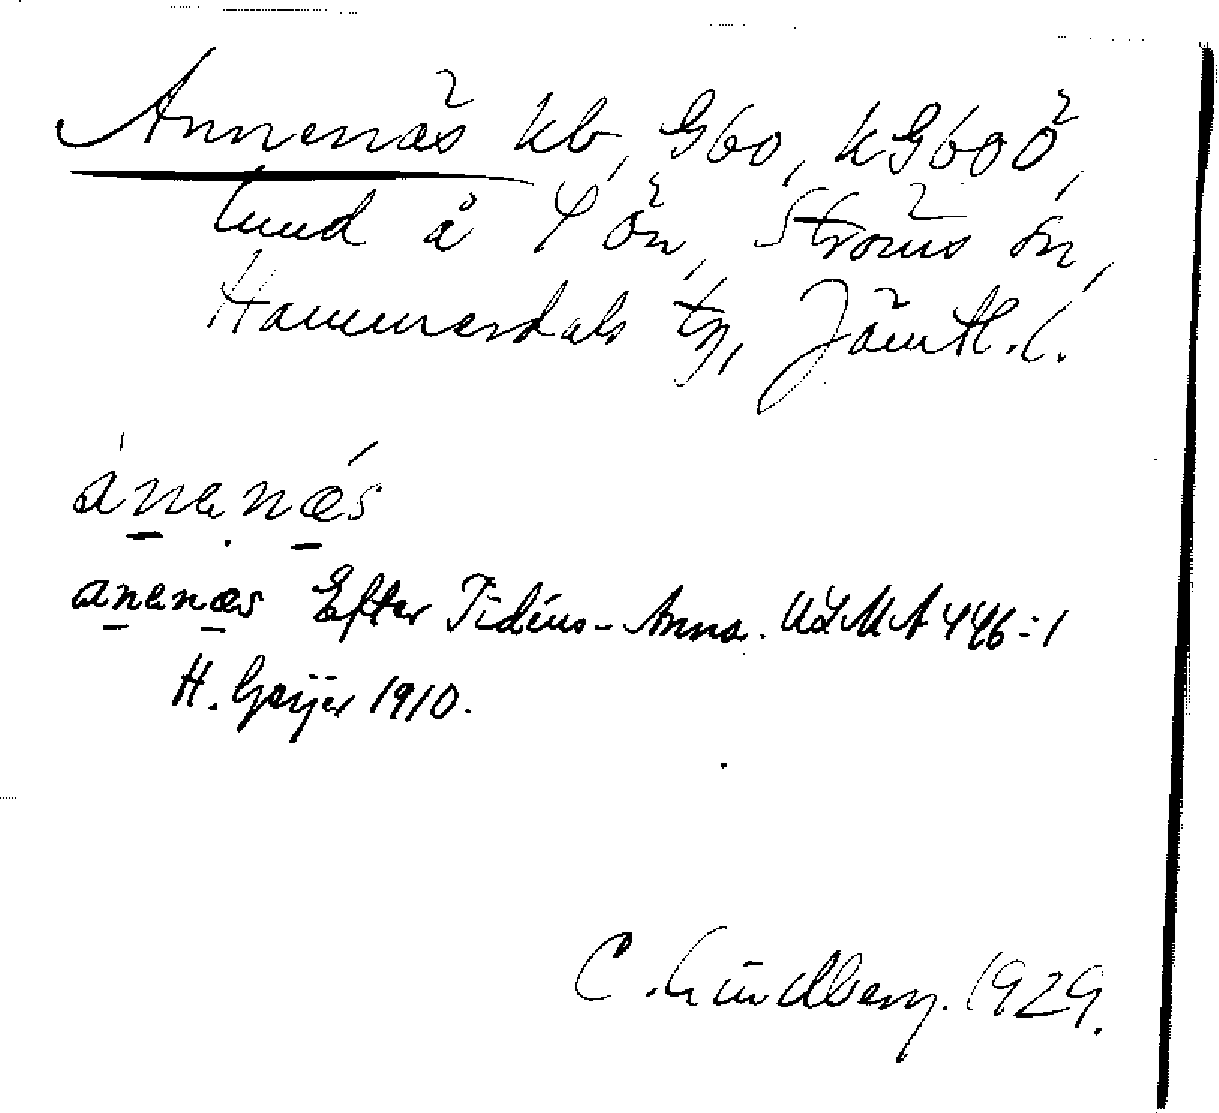 Annenäs kb, Gbo, kGboÖ,
lund å Öön, Ströms sn,
Hammerdals tg, Jämtl. l.
ánenǽs
anenæs Efter Tidéus-Anna. ULMA 446:1
H. Geijer 1910.
C. Lindberg. 1929.